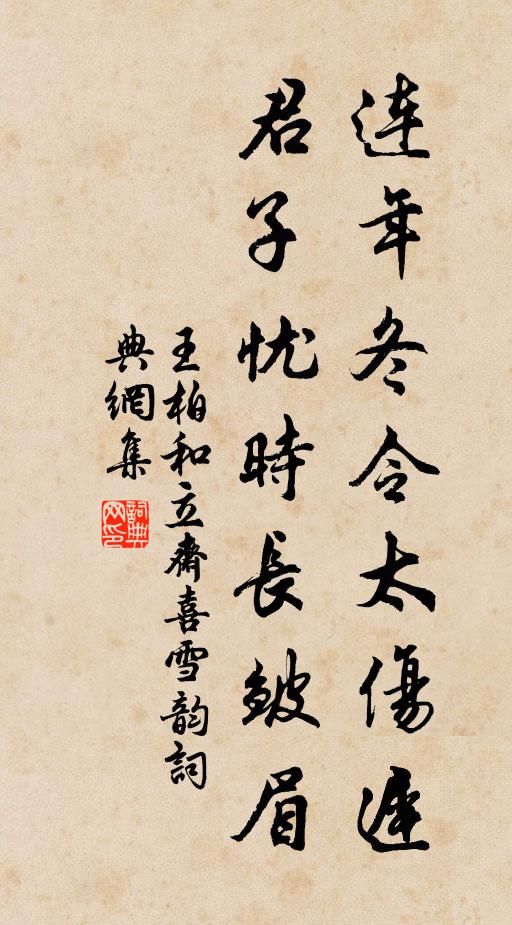 連年冬令太傷遲
君子忧時長皴眉
王柏和立齋喜雪韵詞
典網集
詞典网印